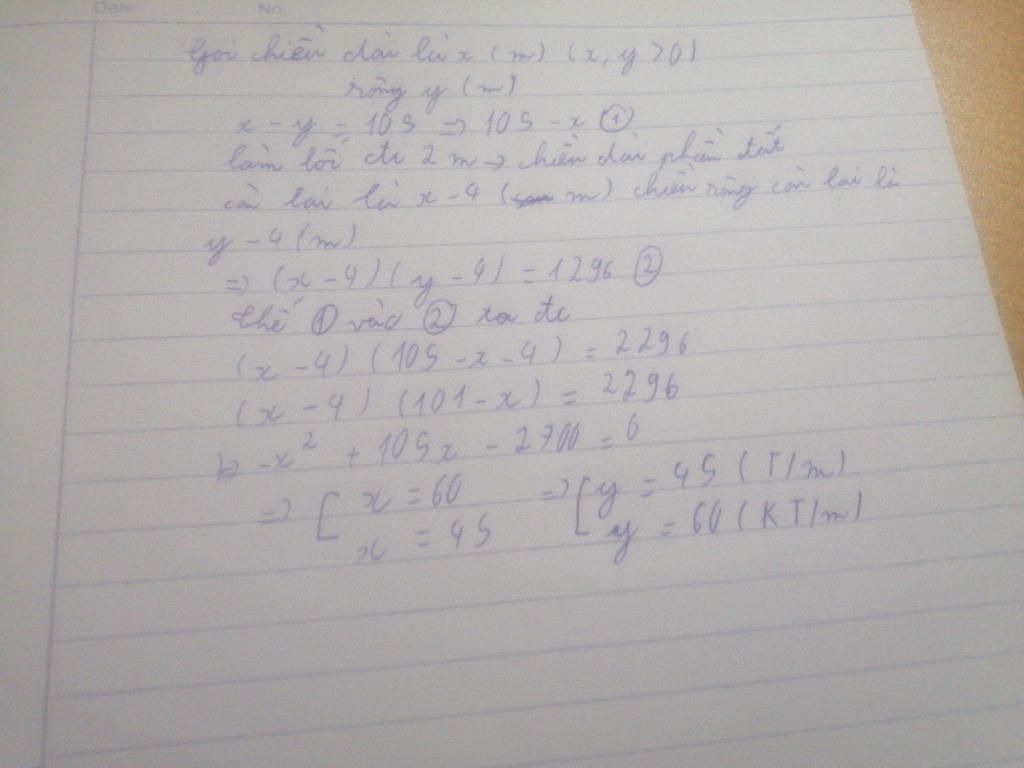 Date No.
Gọi chiều dài là x (m) (x, y > 0)
rộng y (m)
x - y = 105 => 105 - x ①
làm lối đi 2 m -> chiều dài phần đất
còn lại là x - 4 (m) chiều rộng còn lại là
y - 4 (m)
=> (x - 4) (y - 4) = 1296 ②
thế ① vào ② ta đc
(x - 4) (105 - x - 4) = 2296
(x - 4) (101 - x) = 2296
-x² + 105x - 2700 = 0
=> [ x = 60 => [ y = 45 (T/m)
x = 45 y = 60 (KT/m)